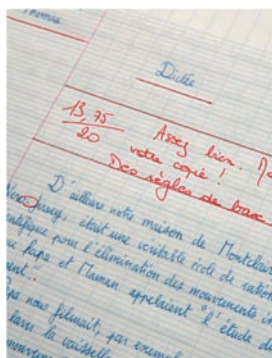 Thomas
Dictée
13,75
20
Assez bien.
votre copie !
Des règles de base
D'ailleurs notre maison de Montclair
Jersey, était une véritable école de
pour l'élimination des mouvements
Papa et Maman appelaient "l'étude
nous filmait, par exemple
la vaisselle